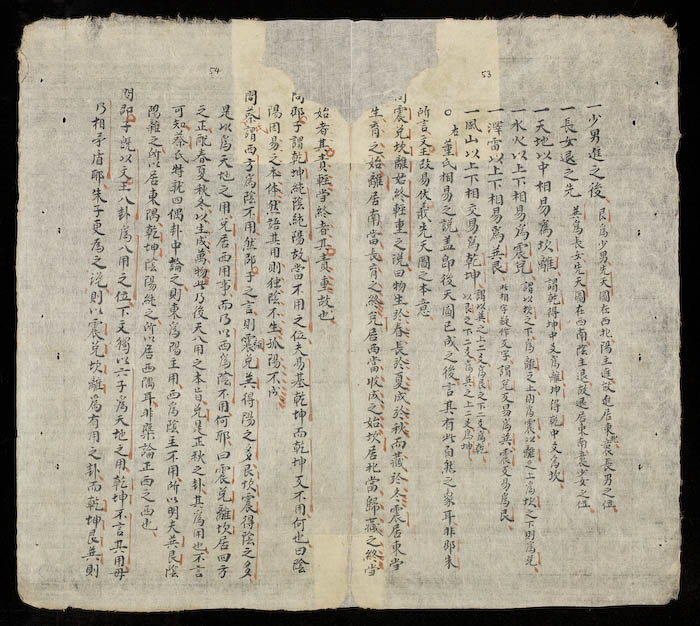 53
一少男進之後 艮爲少男先天圖在西北陽主進故進居東北長男之位
一長女退之先 巽爲長女先天圖在西南陰主退故退居東南少女之位
一天地以中相易爲坎離 謂乾得坤中爻爲離坤得乾中爻爲坎
一水火以上下相易爲震兌 謂以坎之下爲離之上則爲震以離之上爲坎之下則爲兌
一澤雷以上下相易爲艮巽 此相字故作交字謂兌交易爲巽震交易爲艮
一風山以上下相交易爲乾坤 謂以巽之上二爻爲艮之下二爻爲乾以艮之下二爻爲巽之上二爻爲坤
○右董氏相易之說盖即後天圖已成之後言其有此自然之象耳非邵朱
所言文王改易伏羲先天圖之本意
問震兌坎離始終輕重之說曰物生於春長於夏成於秋而藏於冬震居東當
生育之始離居南當長育之終兌居西當收成之始坎居北當歸藏之終當
54
始者其責輕當終者其責重故也
問邵子謂乾坤純陰純陽故當不用之位夫易基乾坤而乾坤又不用何也曰陰
陽固易之本体然語其用則独陰不生孤陽不成
問蔡謂西方爲陰不用然邵子之言則震巽兌得陽之多艮坎震得陰之多
是以爲天地之用兌居西用事而乃以西爲陰不用何耶曰震兌離坎居四方
之正配春夏秋冬以生成萬物此乃後天八用之本旨兌是正秋之卦其爲用也不言
可知蔡氏特就四偶卦中論之則東爲陽主用西爲陰主不用所以明夫巽艮陰
陽雜之所以居東隅乾坤陰陽純之所以居西隅耳非槩論正西之西也
問邵子旣以文王八卦爲八用之位下文獨以六子爲天地之用乾坤不言其用毋
乃相矛盾耶朱子更爲之說則以震兌坎離爲有用之卦而乾坤艮巽則